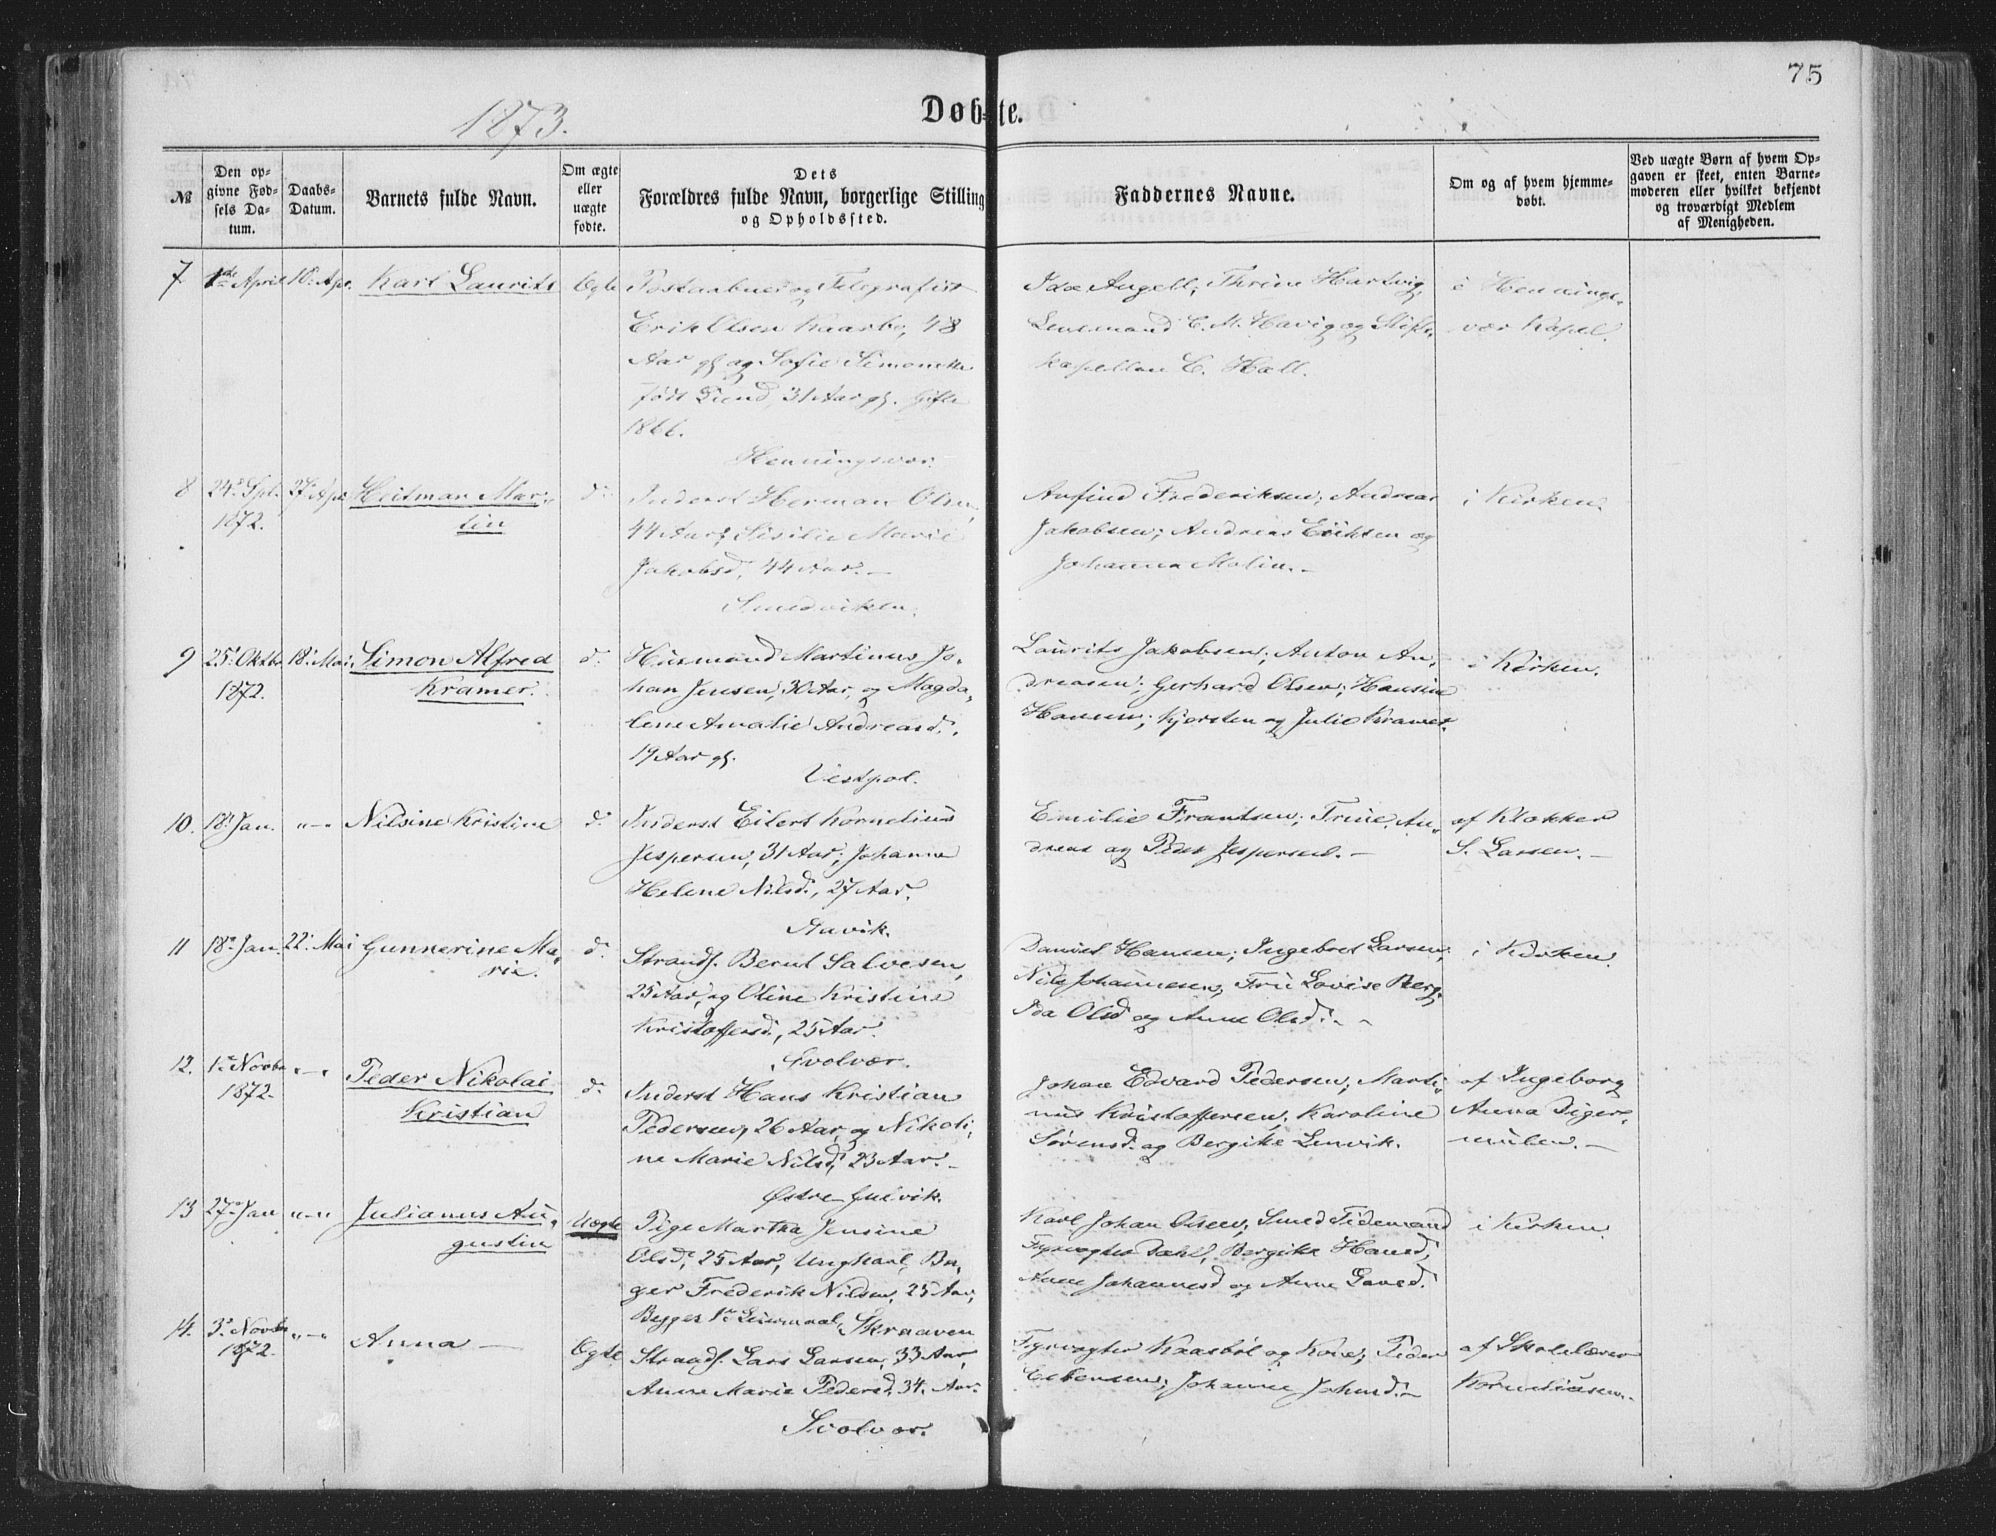 75
1873.
Døbte.
№
Den opgivne Fødsels Datum.
Daabs-Datum.
Barnets fulde Navn.
Om ægte eller uægte fødte.
Dets Forældres fulde Navn, borgerlige Stilling og Opholdssted.
Faddernes Navne.
Om og af hvem hjemmedøbt.
Ved uægte Børn af hvem Opgaven er skeet, enten Barnemoderen eller hvilket bekjendt og troværdigt Medlem af Menigheden.
7 1ste April 10. Apr. Karl Laurits Ægte
Postaabner og Telegrafist
Erik Olsen Kaarbø, 48
Aar gl og Sofie Simonette
født 31 Aar gl. Gifte
1866.
Henningsvær.
Ida Angell, Thrine Hartvig,
Lensmand C. M. Havig og Stifts-
kapellan C. Hall.
i Hennings-
vær Kapel.
8 24. Spt. 27. Apr. Heitman Mar- d.
1872. tin
Inderst Herman Olsen,
44 Aar; Sisilie Marie
Jakobsd, 44 Aar.-
Smedviken.
Arfind Frederiksen; Andreas
Jakobsen; Andreas Eriksen og
Johanna Malin.-
i Kirken.
9 25. Oktbr 18. Mai. Simon Alfred d.
1872. Kramer.
Husmand Martinus Jo-
han Jensen, 30 Aar, og Magda-
lene Amalie Andreasd.
19 Aar gl.
Vestpol.
Laurits Jakobsen; Anton An-
dreasen; Gerhard Olsen; Hansine
Hansen; Kjersten og Julie Kramer.
i Kirken.
10. 18. Jan. "-" Nilsine Kristine d.
Inderst Eilert Kornelius
Jespersen, 31 Aar; Johanna
Helene Nilsd., 27 Aar.
Gavik.
Emilie Frantsen; Trine An-
dreas og Peder Jespersen.-
af Klokker
S. Larsen.-
11 18. Jan. 22. Mai Gunnerine Ma- d.
rie.
Strands. Bernt Salvesen,
25 Aar, og Oline Kristine
Kristoffersd., 25 Aar.
Svolvær.
Daniel Hansen; Ingebret Larsen;
Nils Johannesen, Fru Lovise Berg,
Ida Olsd og Anne Olsd.-
i Kirken.
12. 1. Novbr "-" Peder Nikolai d.
1872. Kristian
Inderst Hans Kristian
Pedersen, 26 Aar, og Nikoli-
ne Marie Nilsd, 23 Aar.-
Østre Gulvik.
Johan Edvard Pedersen; Marti-
nus Kristoffersen; Karoline
Sørensd. og Bergike Lenvik.
af Ingeborg
Anna Diger-
mulen.-
13 27. Jan "-" Julianus Au- Uægte
gustin
Pige Martha Jensine
Olsd, 25 Aar, Ungkarl, Bir-
ger Frederik Nilsen, 25 Aar,
Begges 1ste Leiermaal, Skraaven
Karl Johan Olsen, Smed Tidemand
Fyrvogter Dahl, Bergike Hansd,
Anne Johannesd og Anne
i Kirken.
14. 3. Novbr "-" Anna- Ægte
1872.
Strands. Lars Larsen, 33 Aar,
Anne Marie Pedersd, 34. Aar.
Svolvær.
Fyrvogter Kaasbøl og Kone; Peder
Esbensen; Johanne Johnsd.-
af Skolelærer
Korneliusen.-